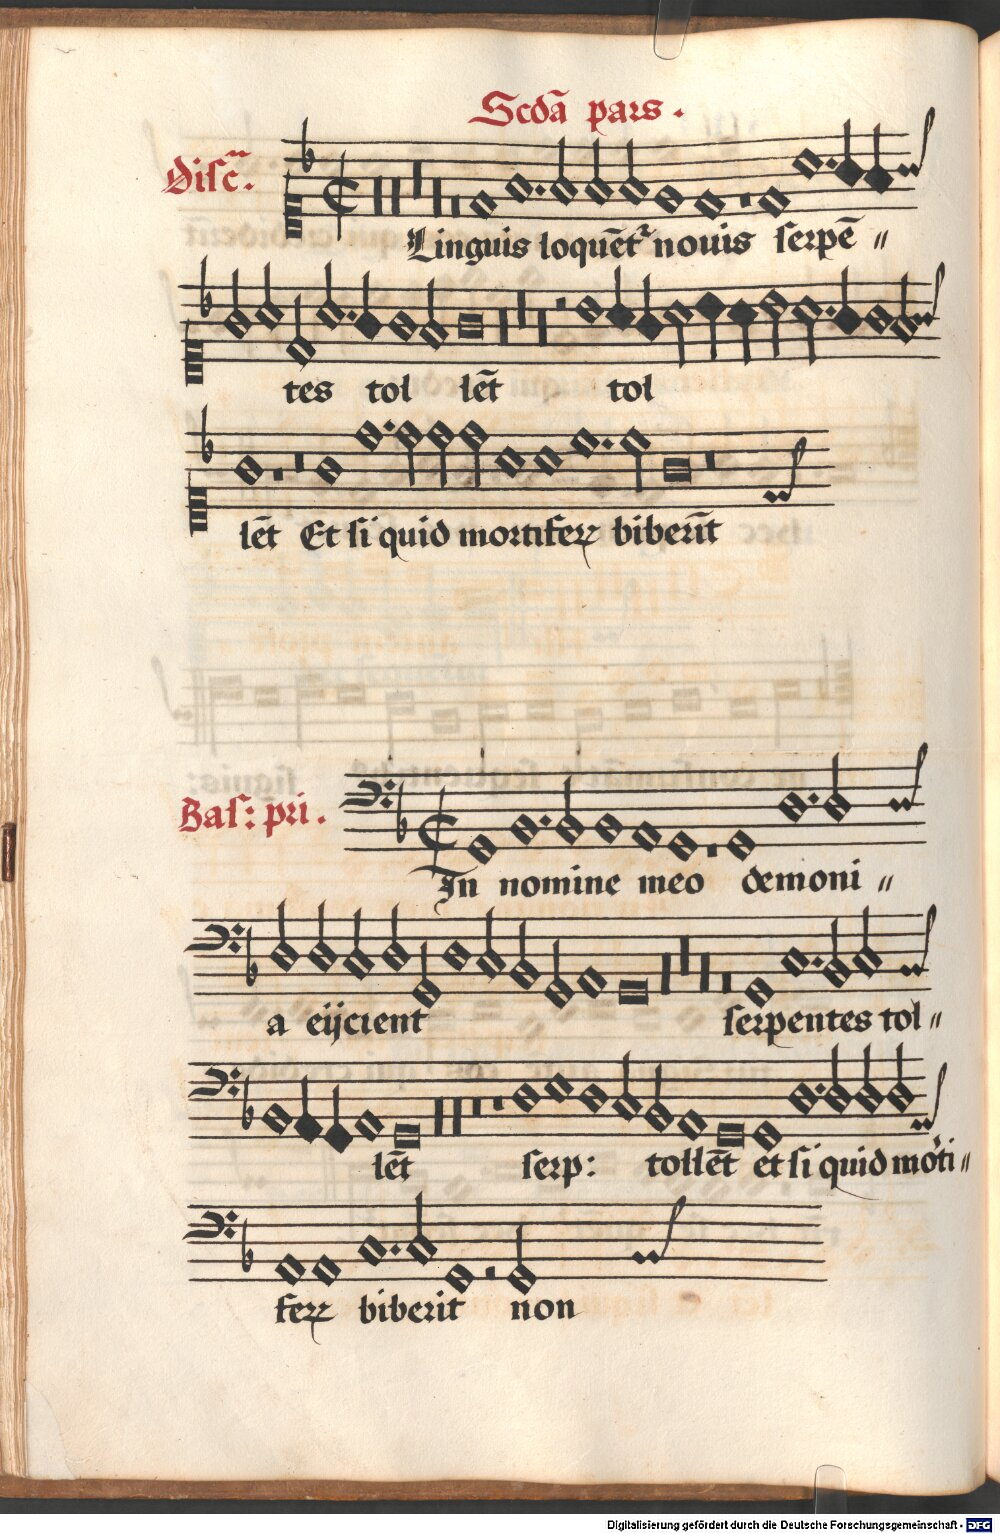 Scdā pars .
Disc̄ .
Linguis loquēt^r nouis serpē //
tes tol lēt tol
lēt Et si quid mortiferꝝ biberīt
Bas : pri .
In nomine meo demoni //
a eijcient serpentes tol //
lēt serp: tollēt et si quid mōti //
ferꝝ biberit non
Digitalisierung gefördert durch die Deutsche Forschungsgemeinschaft - DFG